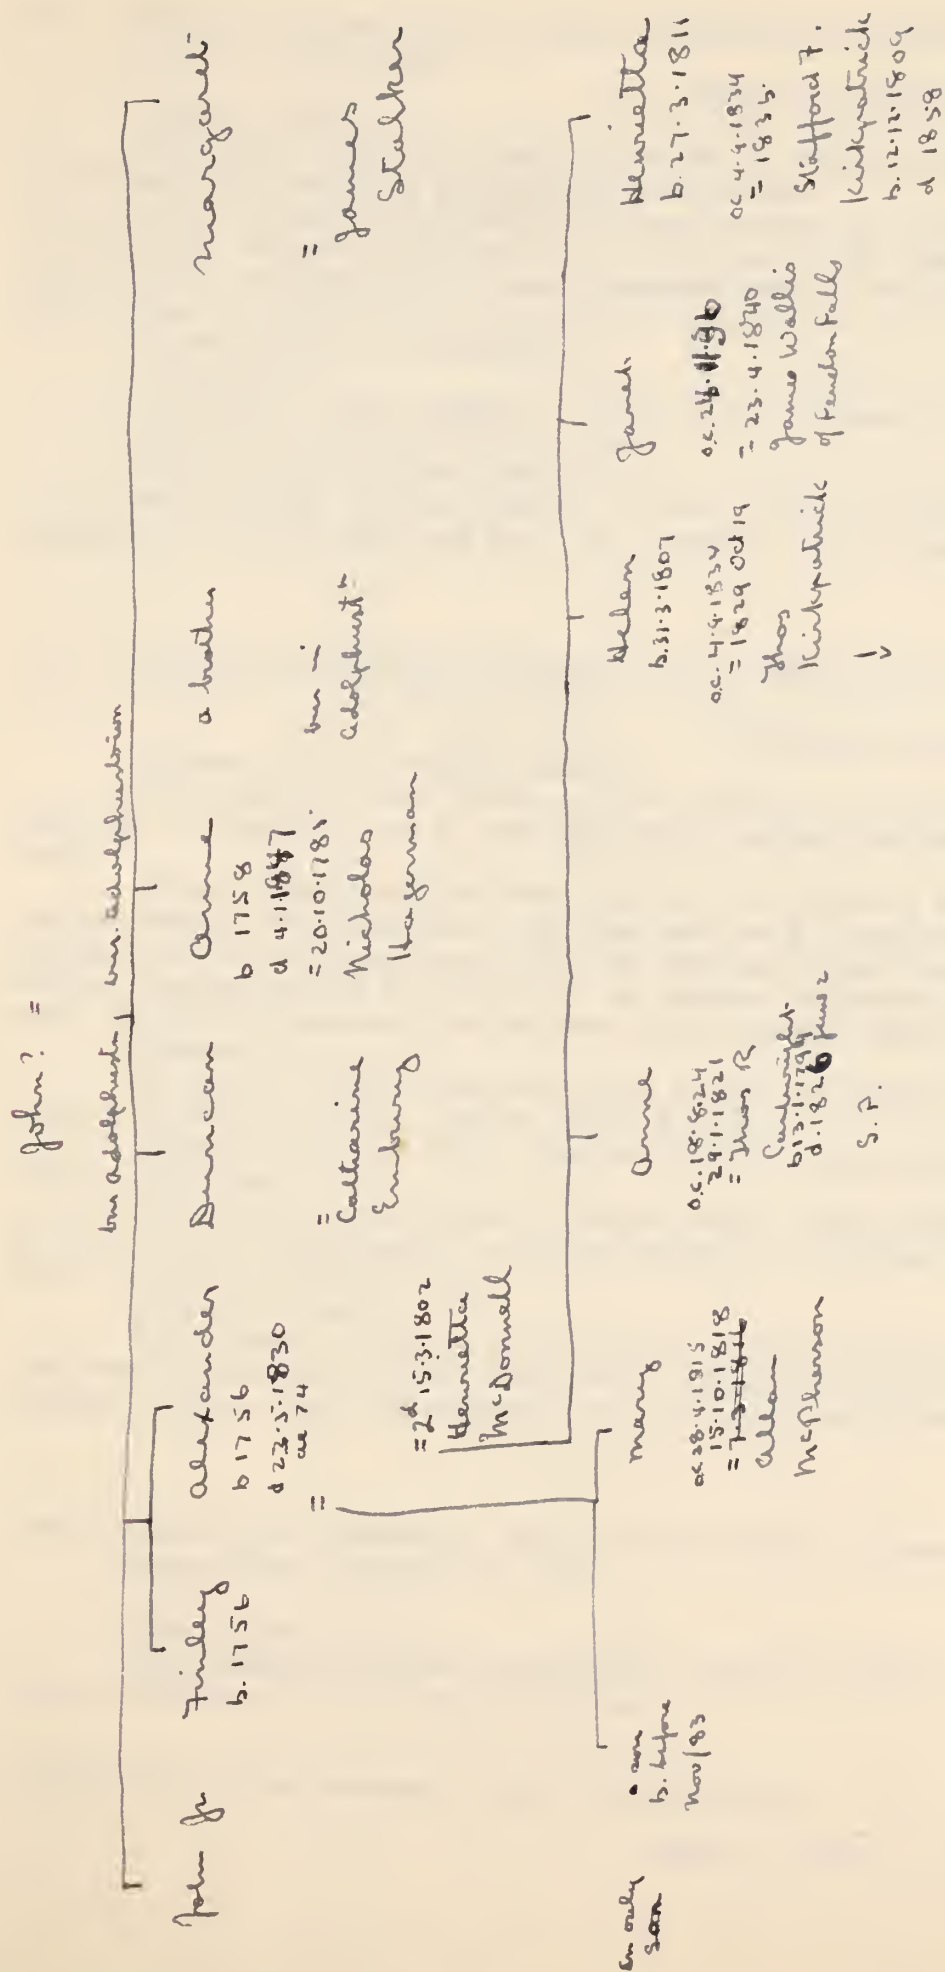 John? =
bur adolphustn
bur. adolphustown
John Jr
Finley
b. 1756
alexander
b 1756
d 23.5.1830
ae 74
=
= 2d 15.3.1802
Henrietta
McDonnell
Duncan
=
Catharine
Embury
Anne
b 1758
d 4.1.1847
= 20.10.1785
Nicholas
Hagerman
a brother
bur in
adolphustn
margaret
=
James
Stalker
an only
son
a son
b. before
Nov/83
mary
oc 28.4.1815
15.10.1818
=
allan
McPherson
anne
o.c. 18.8.24
29.1.1821
= Thos R
Cartwright
b 13.1.1799
d. 1826 June 2
S.P.
Helen
b. 31.3.1807
o.c. 4.4.1834
= 1829 Oct 19
Thos
Kirkpatrick
Janet
= 23.4.1840
James Wallis
of Fenelon Falls
Henrietta
b. 27.3.1811
oc 4.4.1834
= 1835.
Stafford F.
Kirkpatrick
b. 12.12.1809
d 1858